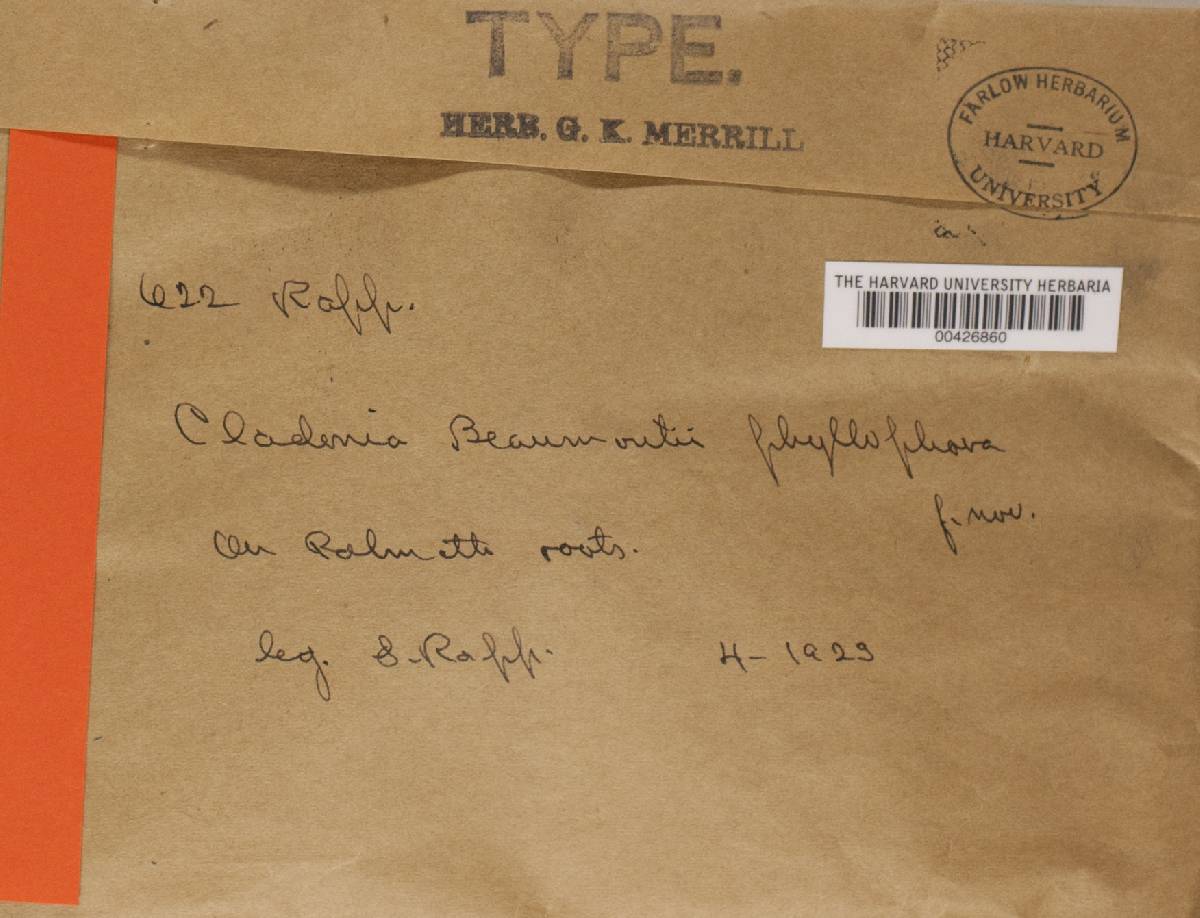 TYPE.
HERB. G. K. MERRILL
FARLOW HERBARIUM
HARVARD
UNIVERSITY
THE HARVARD UNIVERSITY HERBARIA
00426860
622 Rapp.
Cladonia Beaumontii phyllophora
f. nov.
On Palmetto roots.
leg. S. Rapp. 4-1923